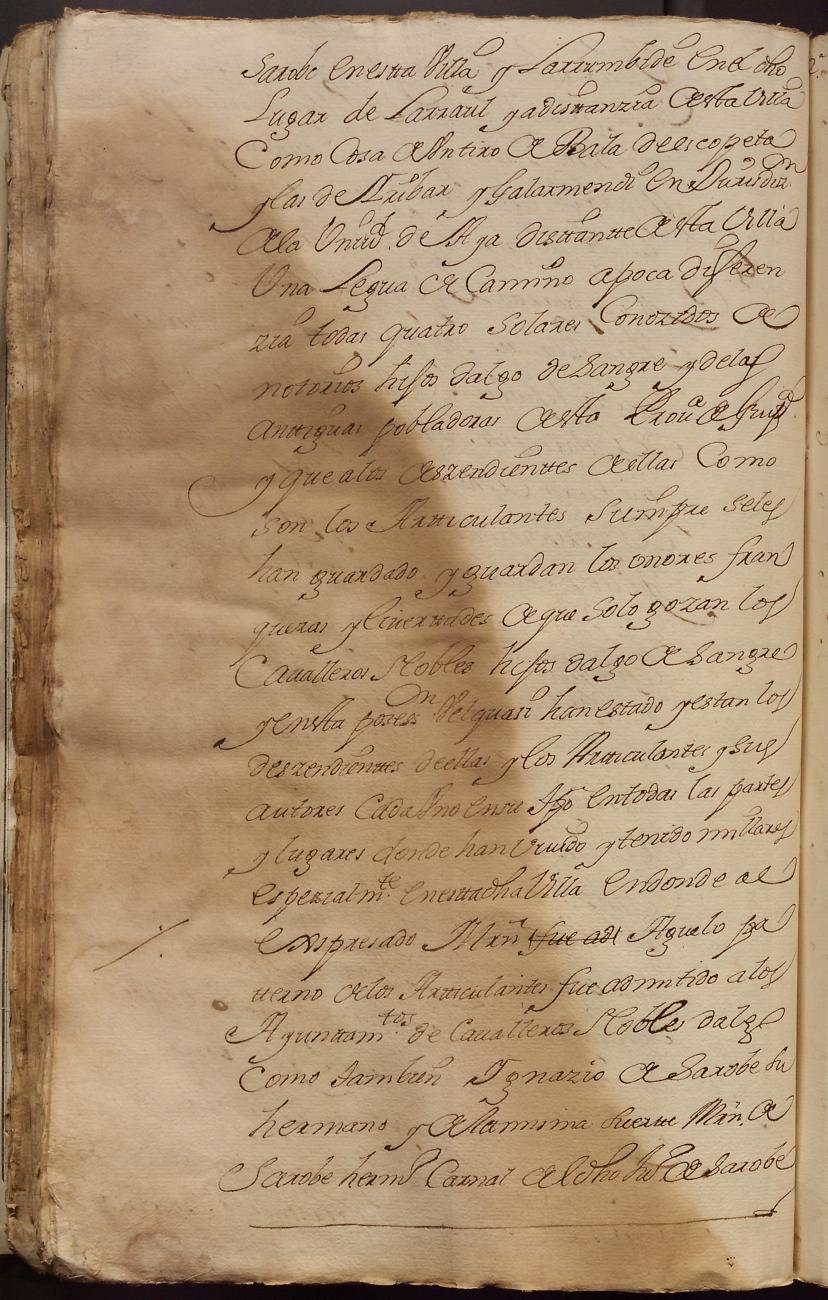 Sarobe en esta Villa y Larrumbide en el dho
Lugar de Larraul y a distanzia de esta Villa
Como Cosa de Un tiro de Bala de escopeta
y las de Aribar y Galarmendi en Jurisdizn
de la Unid. de Aya distante de esta Villa
Una Legua de Camino a poca diferen
zia todas quatro Solares Conozidos de
notorios hijos dalgo de Sangre y delas
antiguas pobladoras de esta Prova de Guipa
y que alos deszendienttes de ellas Como
son los Articulantes siempre seles
han guardado y guardan los onores fran
quezas y liverttades de que solo gozan los
Cavalleros Nobles hijos dalgo de Sangre
y en esta posesn vel quasi han estado y estan los
deszendienttes de ellas y los Articulantes y sus
autores Cada Uno en su tpo en todas las partes
y lugares donde han Vivido y tenido millares
espezialmte en esta dha Villa en donde al
expresado Mrn fue ad Aguelo pa
tterno de los Articulantes fue admitido alos
Ayunttamtos de Cavalleros Nobles dalgo
Como tambien Ignazio de Sarobe su
hermano y de la misma suerte Mrn. de
Sarobe hermo Carnal del dho Jn de Sarobe